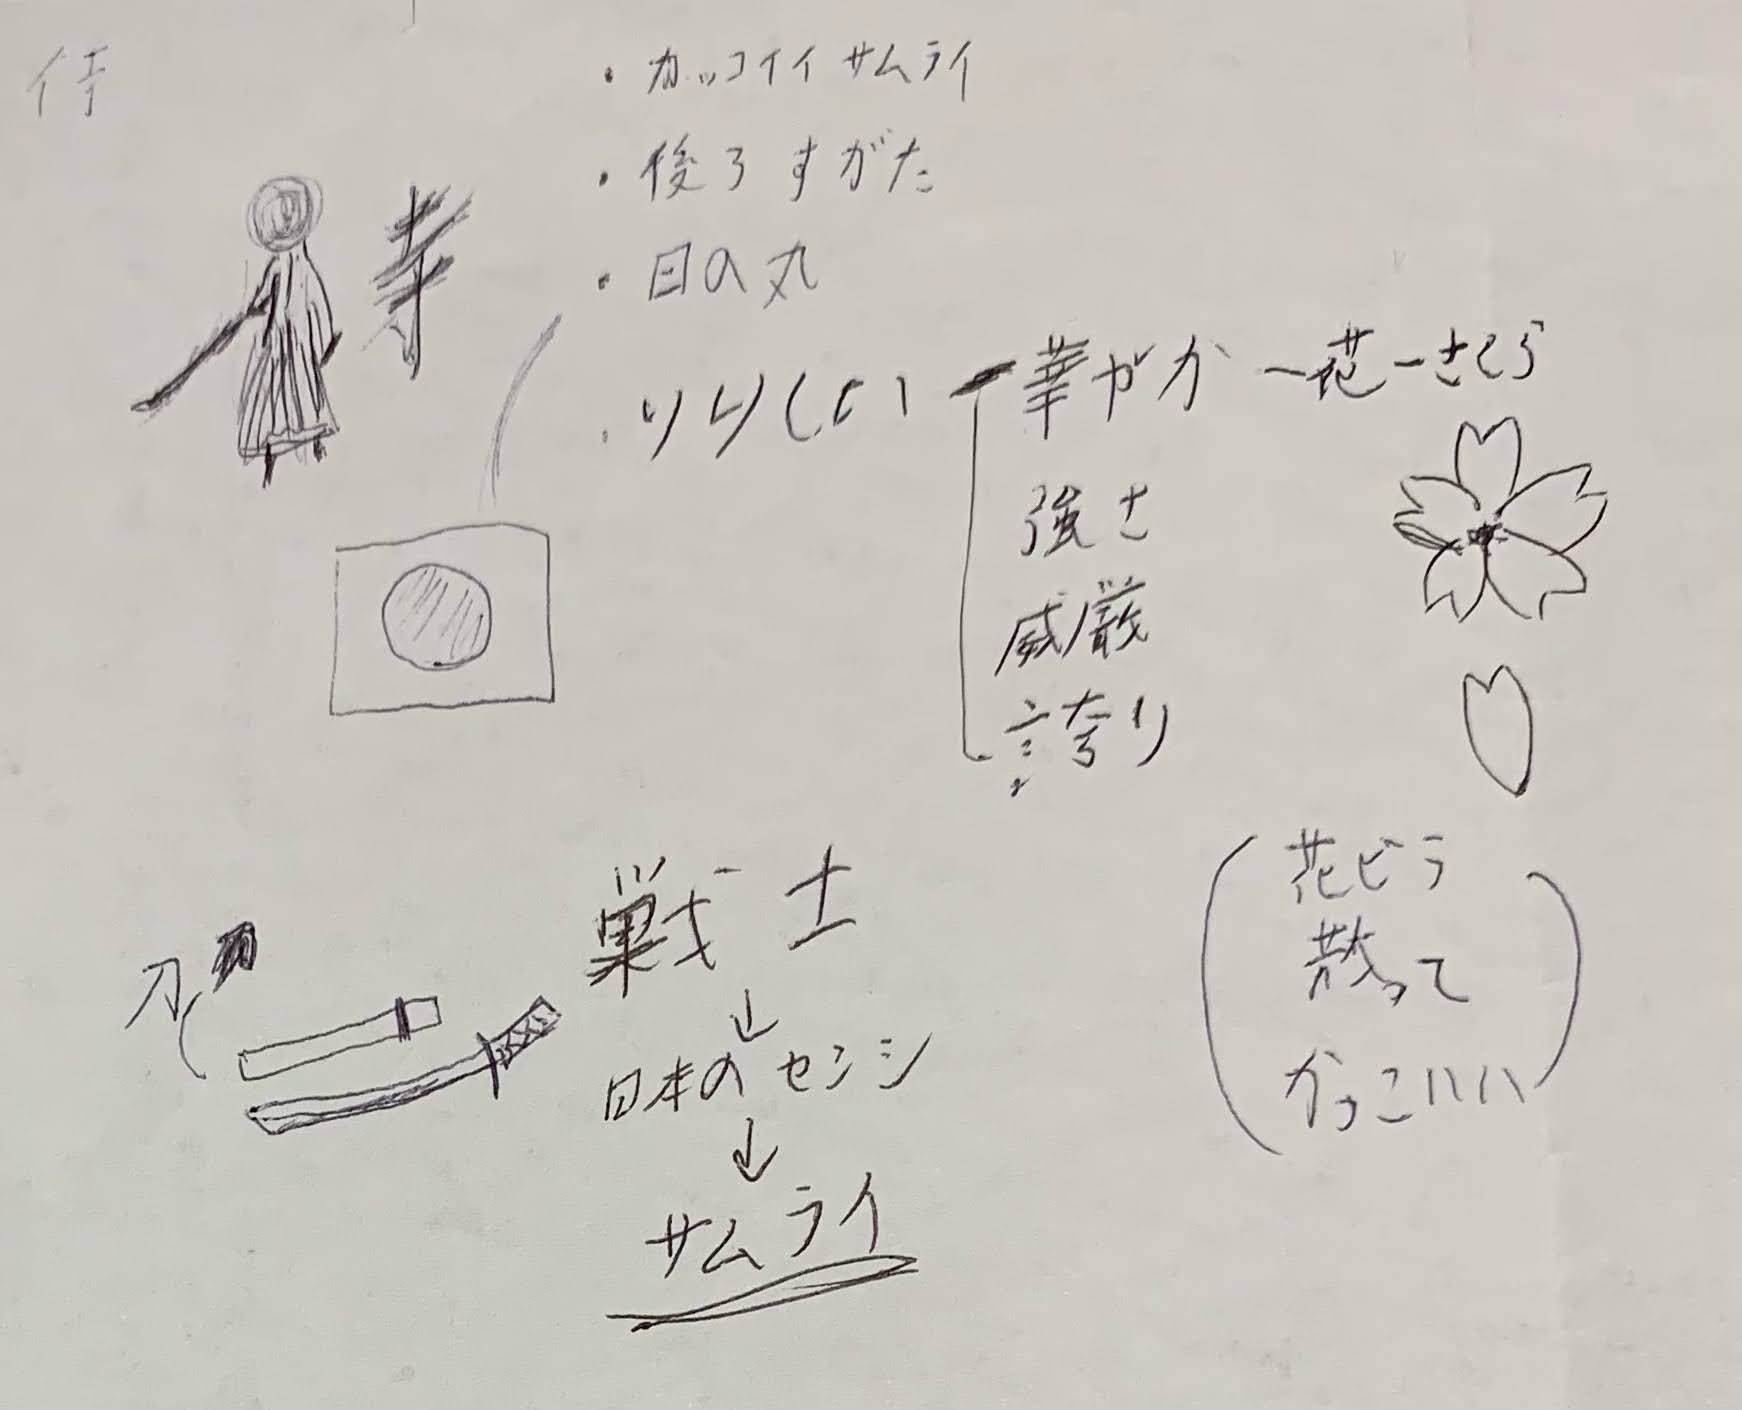 侍
・カッコイイ サムライ
・後ろすがた
・日の丸
・りりしい ー 華やか ー花ーさくら
強さ
威厳
誇り
戦士
↓
日本のセンシ
↓
サムライ
刀
(花ビラ
散って
かっこいい)